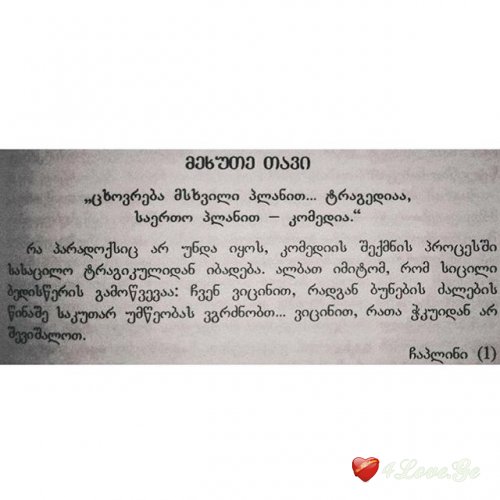 მეხუთე თავი
„ცხოვრება მსხვილი პლანით... ტრაგედიაა,
საერთო პლანით — კომედია.“
რა პარადოქსიც არ უნდა იყოს, კომედიის შექმნის პროცესში
სასაცილო ტრაგიკულიდან იბადება. ალბათ იმიტომ, რომ სიცილი
ბედისწერის გამოწვევაა: ჩვენ ვიცინით, რადგან ბუნების ძალების
წინაშე საკუთარ უმწეობას ვგრძნობთ... ვიცინით, რათა ჭკუიდან არ
შევიშალოთ.
ჩაპლინი (1)
4Love.Ge